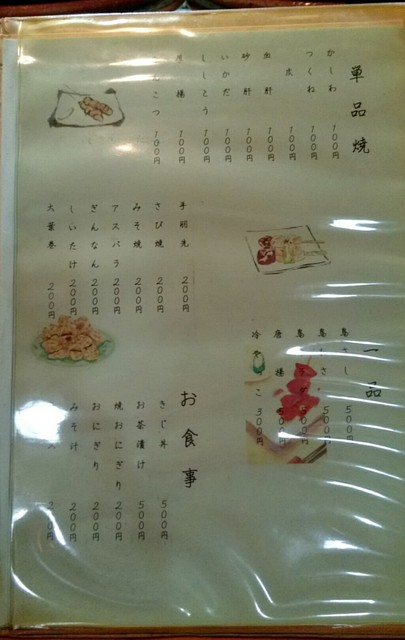 単品焼
かしわ 100円
つくね 100円
皮 100円
血肝 100円
砂肝 100円
いかだ 100円
ししとう 100円
揚 100円
こつ 100円
手羽先 200円
さび焼 200円
みそ焼 200円
アスパラ 200円
ぎんなん 200円
しいたけ 200円
大葉巻 200円
一品
さし 500円
500円
500円
唐揚
冷 こ 300円
お食事
きじ丼 500円
お茶漬け 500円
焼おにぎり 200円
おにぎり 200円
みそ汁 200円
200円